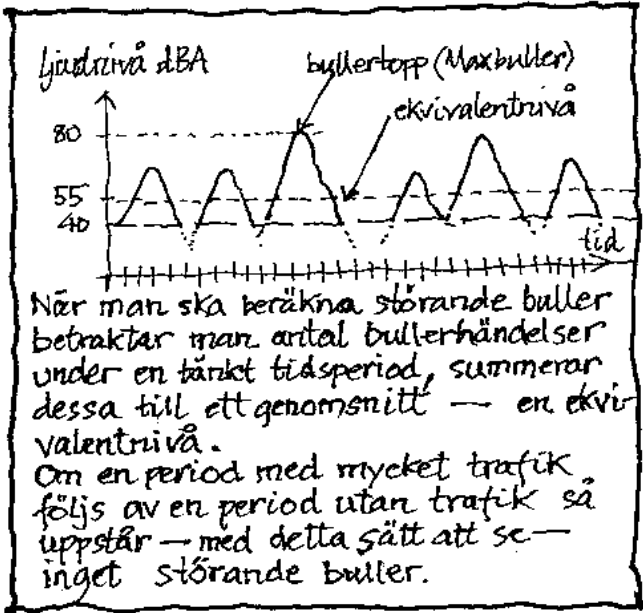 ljudnivå dBA
bullertopp (Maxbuller)
ekvivalentnivå
80
55
40
tid
När man ska beräkna störande buller
betraktar man antal bullerhändelser
under en tänkt tidsperiod, summerar
dessa till ett genomsnitt — en ekvi-
valentnivå.
Om en period med mycket trafik
följs av en period utan trafik så
uppstår — med detta sätt att se —
inget störande buller.